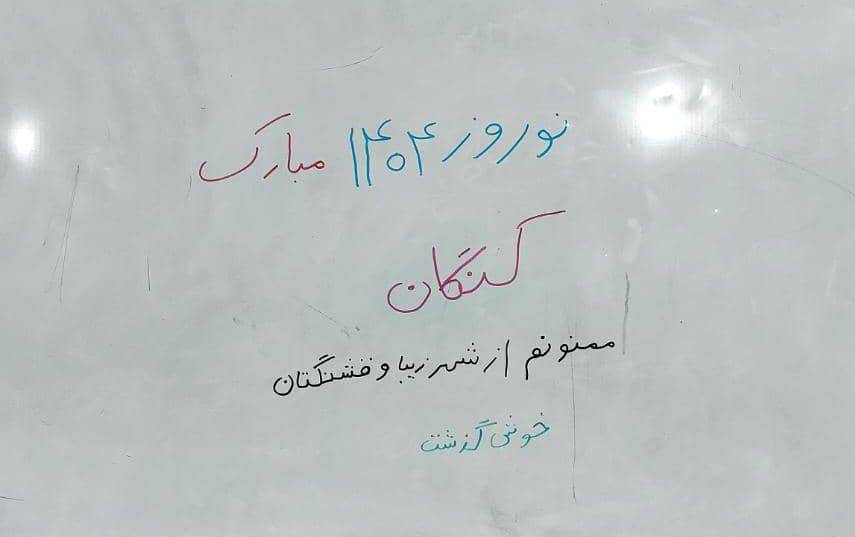 نوروز ۱۴۰۴ مبارک
کنگان
ممنونم از شهر زیبا و قشنگتان
خوش گذشت